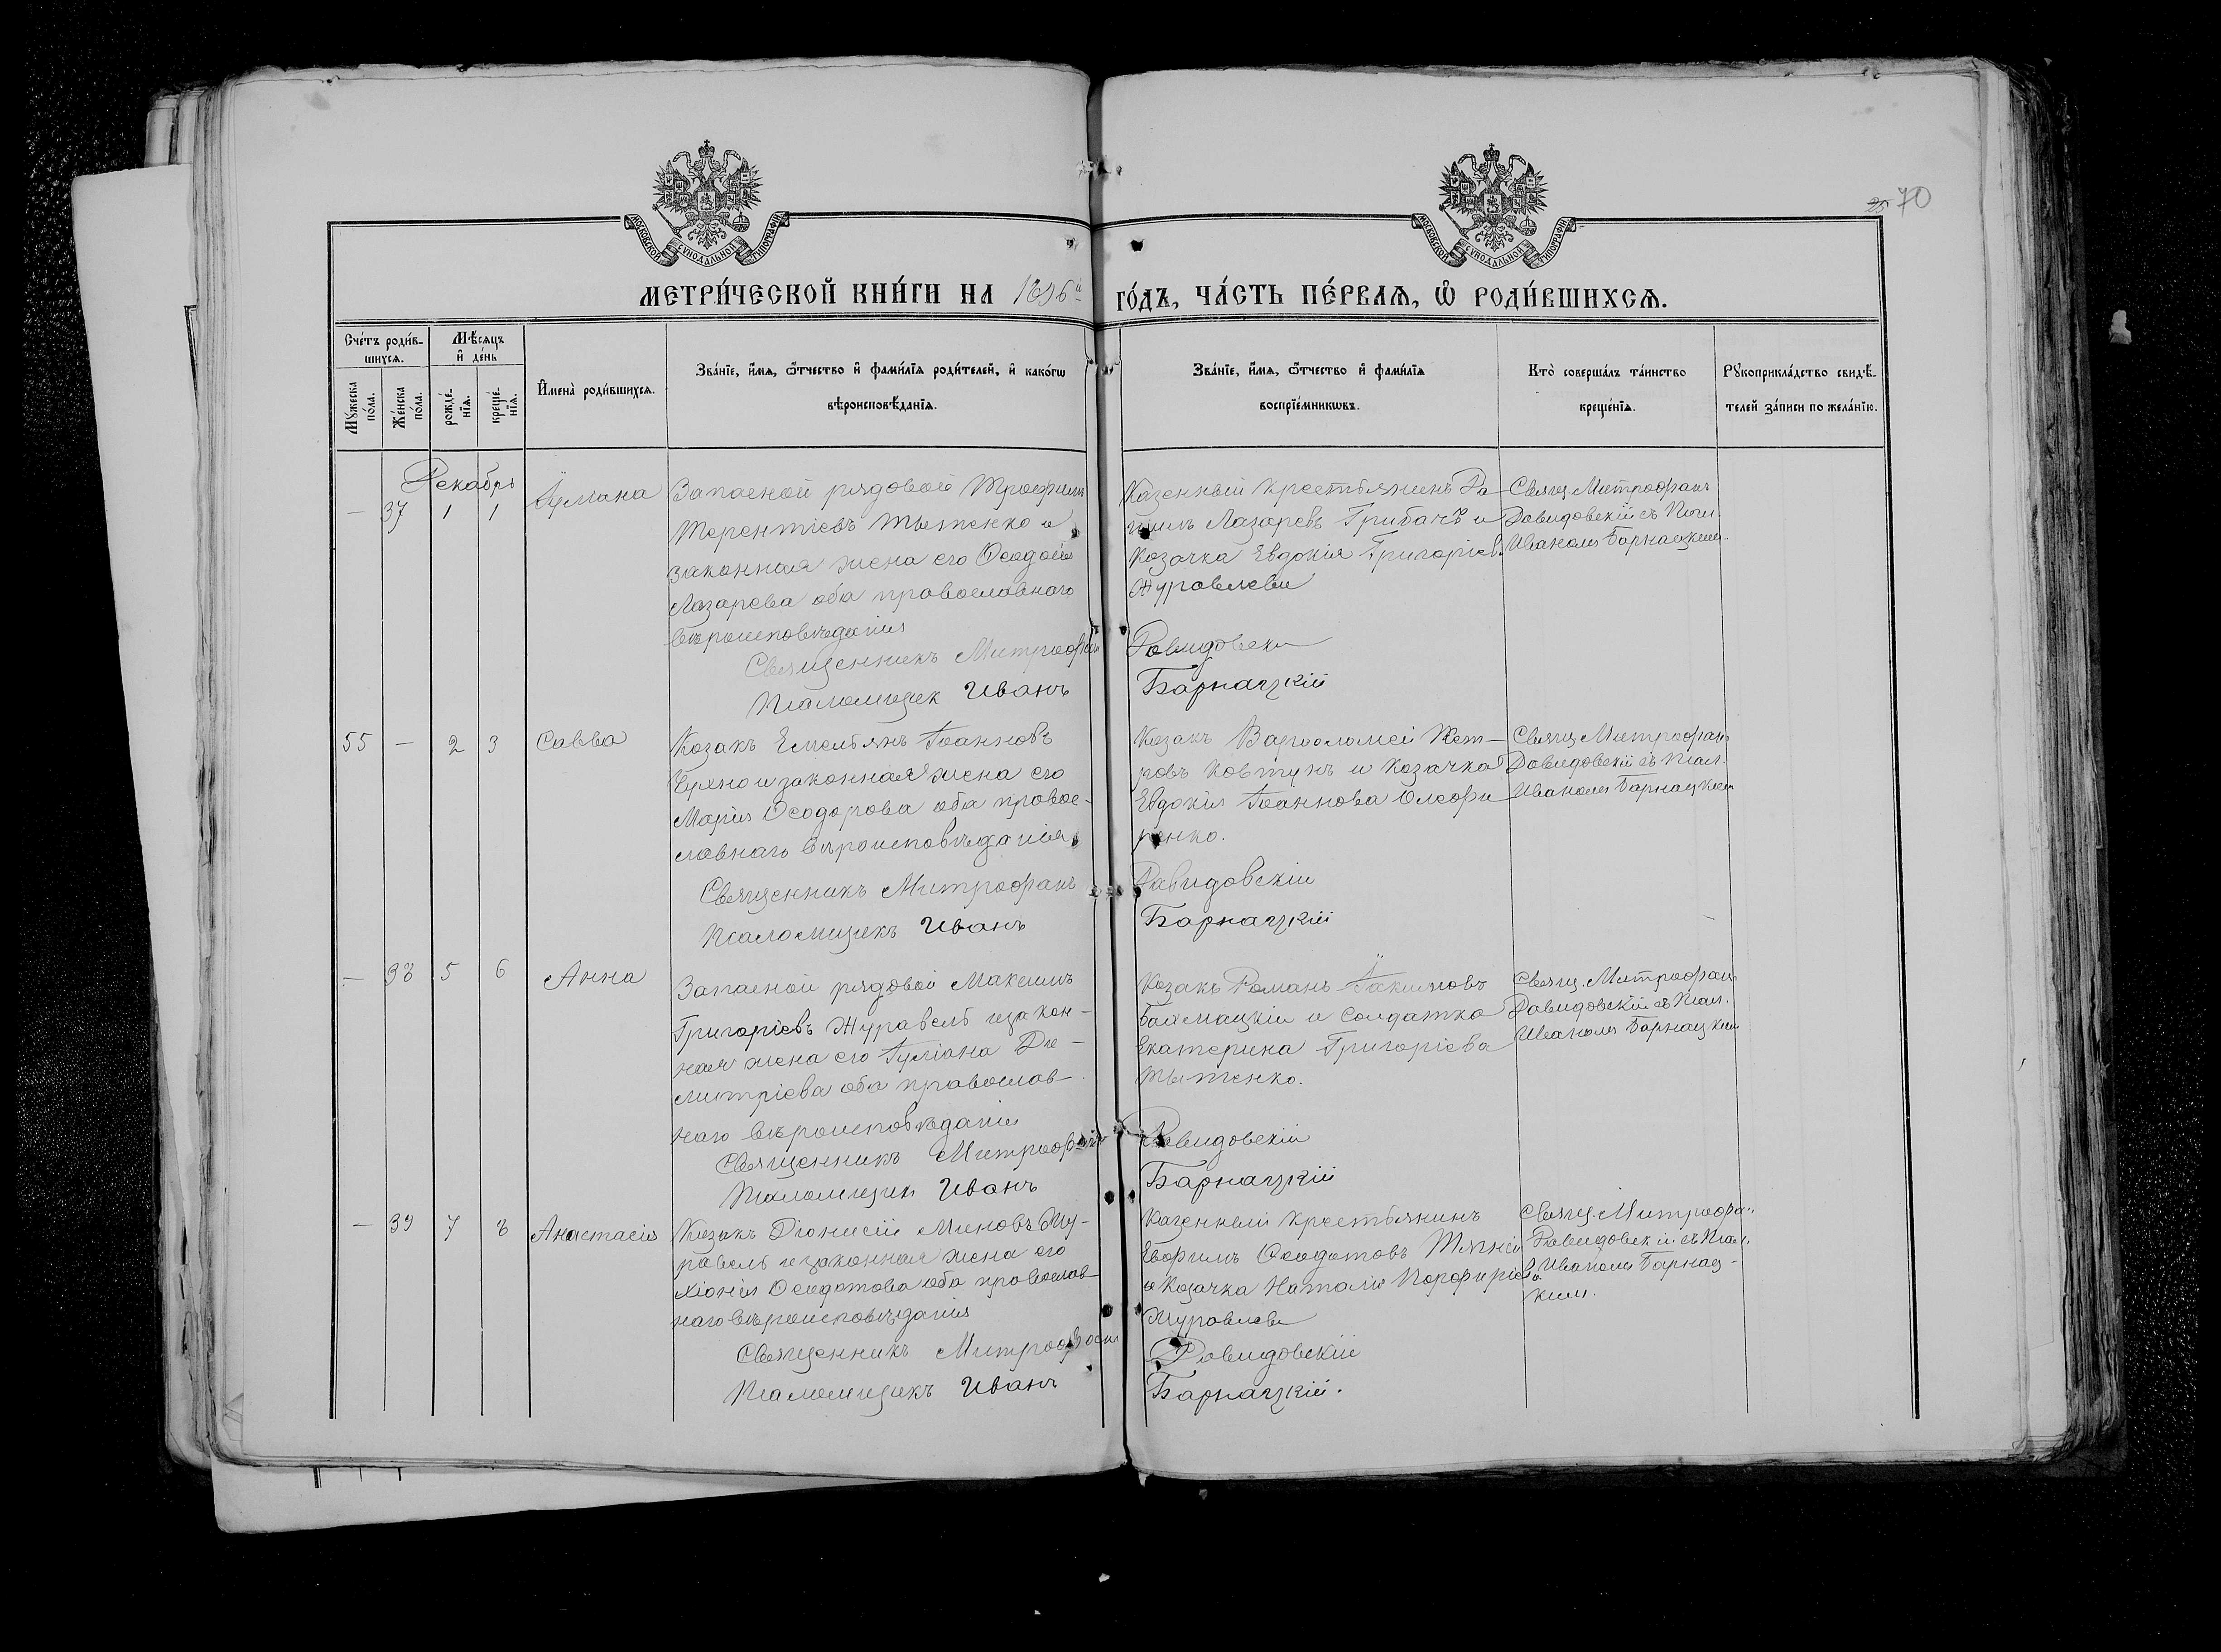 70
МОСКОВСКОЙ СѴНОДАЛЬНОЙ ТИПОГРАФІИ
МОСКОВСКОЙ СѴНОДАЛЬНОЙ ТИПОГРАФІИ
МЕТРИ́ЧЕСКОЙ КНИ́ГИ НА 1896й ГО́ДЪ, ЧА́СТЬ ПЕ́РВАЯ, Ѽ РОДИ́ВШИХСЯ.
Сче́тъ роди́в-
шихся.
Мѣ́сяцъ
и де́нь
Му́жеска
по́ла.
Же́нска
по́ла.
рожде́-
нїя.
креще́-
нїя.
Имена̀ роди́вшихся.
Зва́нїе, и́мя, ѻ́тчество и фами́лїя роди́телей, и како́гѡ
вѣроисповѣ́данїя.
Зва́нїе, и́мя, ѻ́тчество и фами́лїя
воспрїе́мникѡвъ.
Кто̀ соверша́лъ та́инство
креще́нїя.
Рꙋкоприкла́дство свидѣ́-
телей за́писи по жела́нїю.
Декабрь
— 37 1 1
Запасной рядовой Трофимъ
Терентіевъ Тытенко и
законная жена его Ѳеодосія
Лазарева оба православнаго
вѣроисповѣданія
Священникъ Митрофанъ
Псаломщик Иванъ
Казенный крестьянинъ
Лазаревъ Грибачъ и
Козачка Евдокія Григоріев.
Журавлева
Давидовскій
Барнацкій
Свящ. Митрофанъ
Давидовскій съ Псал.
Иваномъ Барнацкимъ
55 — 2 3 Савва
Козакъ Емельянъ Іоанновъ
и законная жена его
Марія Ѳеодорова оба правос-
лавнаго вѣроисповѣданія
Священникъ Митрофанъ
Псаломщикъ Иванъ
Козакъ Варфоломей Пет-
ровъ Ковтунъ и козачка
Евдокія Іоаннова Олефи
ренко.
Давидовскій
Барнацкій
Свящ. Митрофанъ
Давидовскій съ Псал.
Иваномъ Барнацким
— 38 5 6 Анна
Запасной рядовой Максимъ
Григоріевъ Журавель и закон-
ная жена его Іуліана Ди-
митріева оба православ-
наго вѣроисповѣданія
Священникъ Митрофанъ
Псаломщикъ Иванъ
Козакъ Романъ Іакимовъ
Бахмацкій и солдатка
Екатерина Григоріева
Тытенко.
Давидовскій
Барнацкій
Свящ. Митрофанъ
Давидовскій съ Псал.
Иваномъ Барнацким
— 39 7 8 Анастасія
Козакъ Діонисій Миновъ Жу-
равель и законная жена его
Хіонія Ѳеодотова оба православ-
наго вѣроисповѣданія
Священникъ Митрофанъ
Псаломщикъ Иванъ
Казенный крестьянинъ
Евфимъ Ѳеодотовъ
и козачка Наталія Порфиріева
Журавлева
Давидовскій
Барнацкій.
Свящ. Митрофан
Давидовскій съ Псал.
Иваномъ Барнац-
ким.